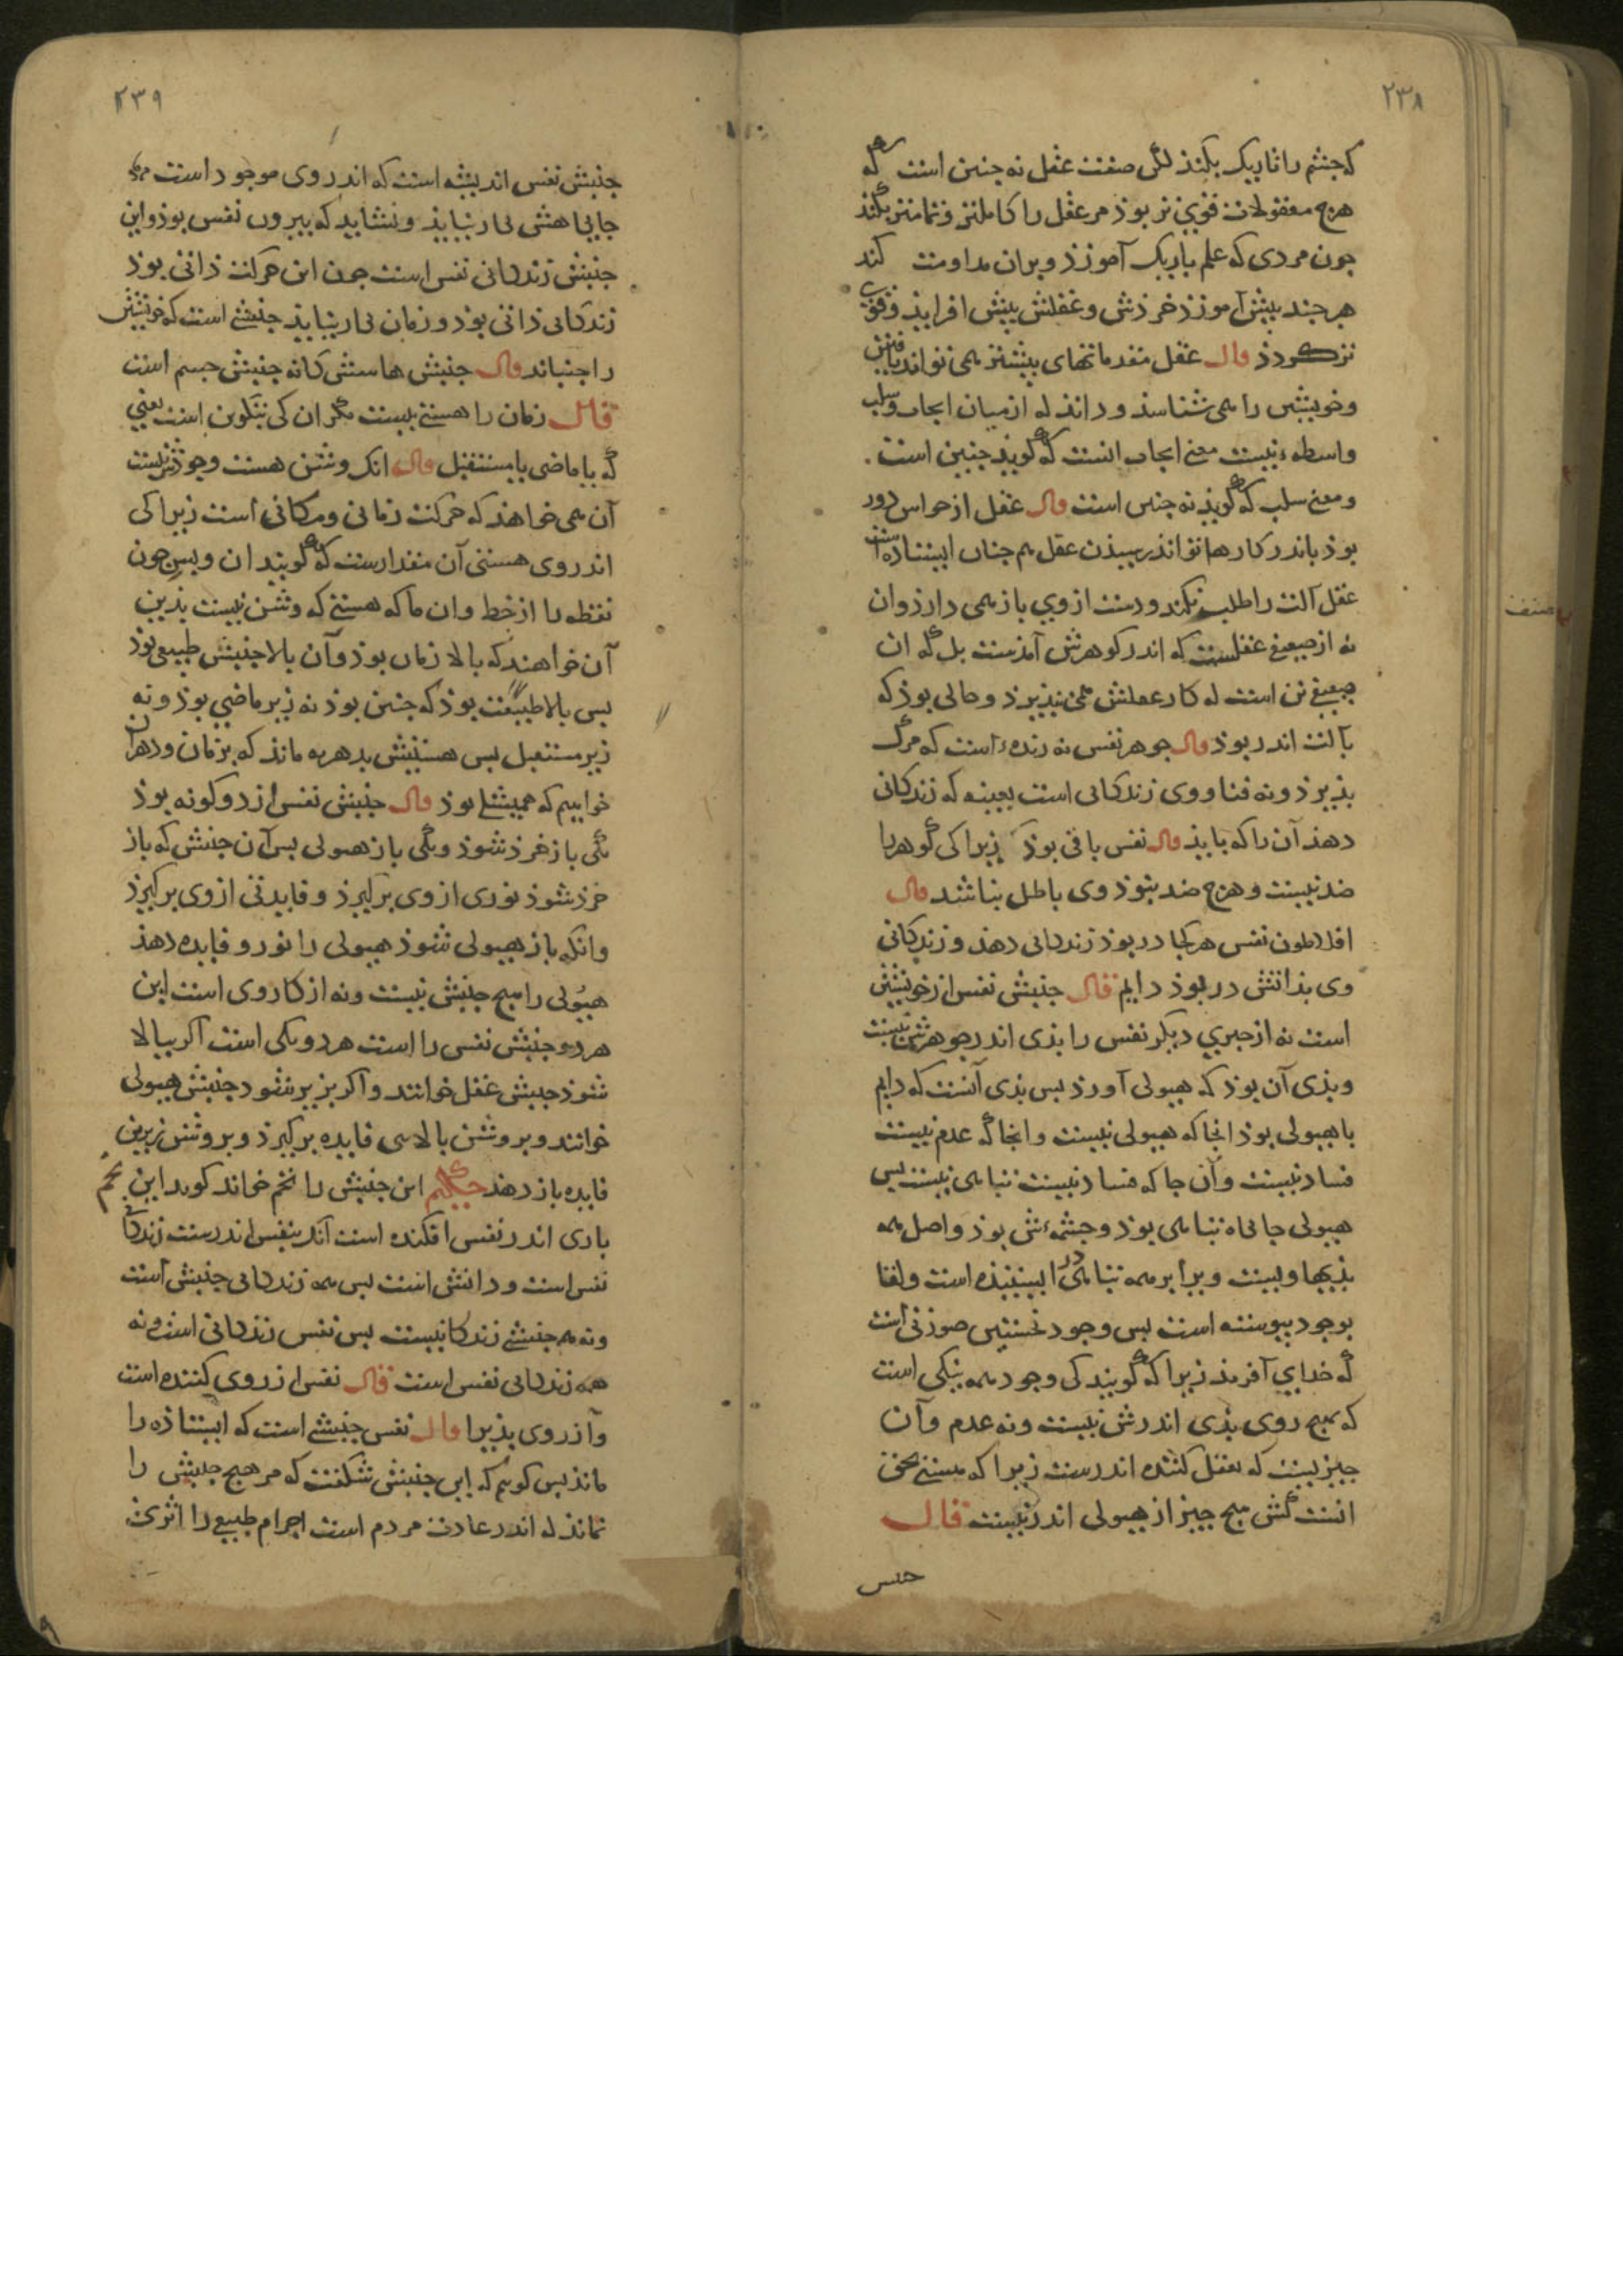 ٢٣٨
که چشم را تاریک بکند لکن صفت عقل نه چنین است که
هرچ معقولات قوی تر بوذ مر عقل را کاملتر و تمامتر بکند
جون مردی که علم باریک آموزذ و بران مداومت کند
هر جند بیش آموزذ خرذش و عقلش بیش افزایذ و قوی
تر کردذ قال عقل مقدماتهای بیشتر همی تواند یافتن
و خویشتن را همی شناسذ و داند که از میان ایجاب و سلب
واسطه نیست معنی ایجاب انست که کویذ جنین است .
و معنی سلب که کویذ نه جنین است قال عقل از حواس دور
بوذ باندر کارها نتواند رسیذن عقل هم جنان ایستاذه است
عقل آلت را طلب نکند و دست از وی باز همی دارذ وان
نه از ضعیفی عقلست که اندر کوهرش آمذست بل که ان
ضعیفی تن است که کار عقلش همی نپذیرذ و حالی بوذ که
بآلت اندر بوذ قال جوهر نفس نه زنده است که مرک
بذیرذ و نه فنا و وی زندکانی است بعینه که زندکانی
دهذ آن را که بایذ قال نفس باقی بوذ زیرا کی کوهر را
ضد نیست و هرچ ضد نبوذ وی باطل نباشد قال
افلاطون نفس هر کجا در بوذ زندکانی دهذ و زندکانی
وی بذاتش در بوذ دایم قال جنبش نفس از خویشتن
است نه از جیزی دیکر نفس را بذی اندر جوهرش نیست
و بذی آن بوذ که هیولی آورذ بس بذی آنست که دایم
با هیولی بوذ انجا که هیولی نیست وانجا که عدم نیست
فساد نیست و آن جا که فساد نیست تباهی نیست بس
هیولی جایکاه تباهی بوذ و جشمه‌ش بوذ و اصل همه
بذیها ویست و برابر همه تباهی در ایستیذه است و لقا
بوجود بیوسته است بس وجود نخستین صورتی است
که خدای آفرید زیرا که کویند کی وجود همه نیکی است
که هیچ روی بذی اندرش نیست و نه عدم و آن
جیز نیست که بعقل کننده اندرست زیرا که هستی محض
انست کش هیچ جیز از هیولی اندر نیست قال
جنبش
٢٣٩
جنبش نفس اندیشه است که اندر وی موجود است
جایی هش بکار نیایذ و نشاید که بیرون نفس بوذ و این
جنبش زندکانی نفس است جون این حرکت ذاتی بوذ
زندکانی ذاتی بوذ و زمان بکار نیایذ جنبشی است که خویشتن
را جنباند قال جنبش هاستش کانه جنبش جسم است
قال زمان را هستی نیست مکر ان کی بتکوین است یعنی
که یا ماضی یا مستقبل قال انک وشن هست وجوذش نیست
آن همی خواهند که حرکت زمانی و مکانی است زیرا کی
اندر وی هستی آن مقدارست که کویند ان و بس جون
نقطه را از خط وان ما که هستی که وشن نیست بذین
آن خواهند که بالا زمان بوذ و آن بالا جنبش طبیعی بوذ
بس بالا طبیعت بوذ که جنین بوذ نه زیر ماضی بوذ و نه
زیر مستقبل بس هستیش بدهر به مانذ که بزمان و دهر ان
خواهیم که همیشکی بوذ قال جنبش نفس از دو کونه بوذ
یکی باز خرذ شوذ و یکی باز هیولی بس آن جنبش که باز
خرذ شوذ نوری از وی برکیرذ و فایدتی از وی برکیرذ
وانکه باز هیولی شوذ هیولی را نور و فایده دهذ
هیولی را هیچ جنبش نیست و نه از کار وی است این
هر دو جنبش نفس را است هر دو یکی است اکر ببالا
شوذ جنبش عقل خوانند و اکر بزیر شود جنبش هیولی
خوانند و بروشن بالاسی فایده برکیرذ و بروشن زیرین
فایده باز دهذ حکیم این جنبش را تخم خواند کوید این تخم
باری اندر نفس افکنده است آنک بنفس اندرست زندکانی
نفس است و دانش است بس همه زندکانی جنبش است
و نه هر جنبشی زندکانیست بس نفس زندکانی است و نه
همه زندکانی نفس است قال نفس از روی کننده است
و از روی بذیرا قال نفس جنبشی است که ایستاذه را
ماند بس کویم که این جنبش شکفت که مر هیچ جنبش را
نماند که اندر عادت مردم است اجرام طبیعی را اثری